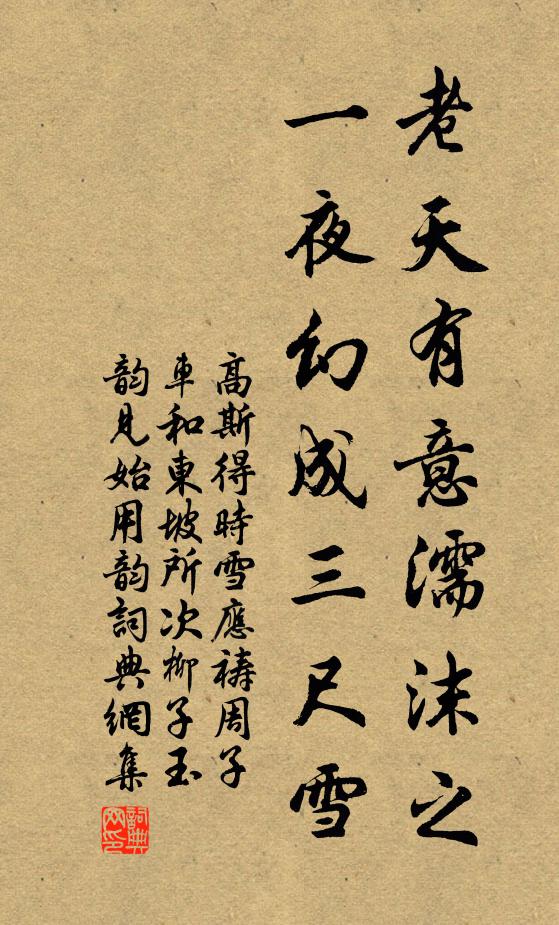 老天有意濡沫之
一夜幻成三尺雪
高斯得時雪應禱周子
車和東坡所次柳子玉
韵見始用韵詞典網集
詞典网印